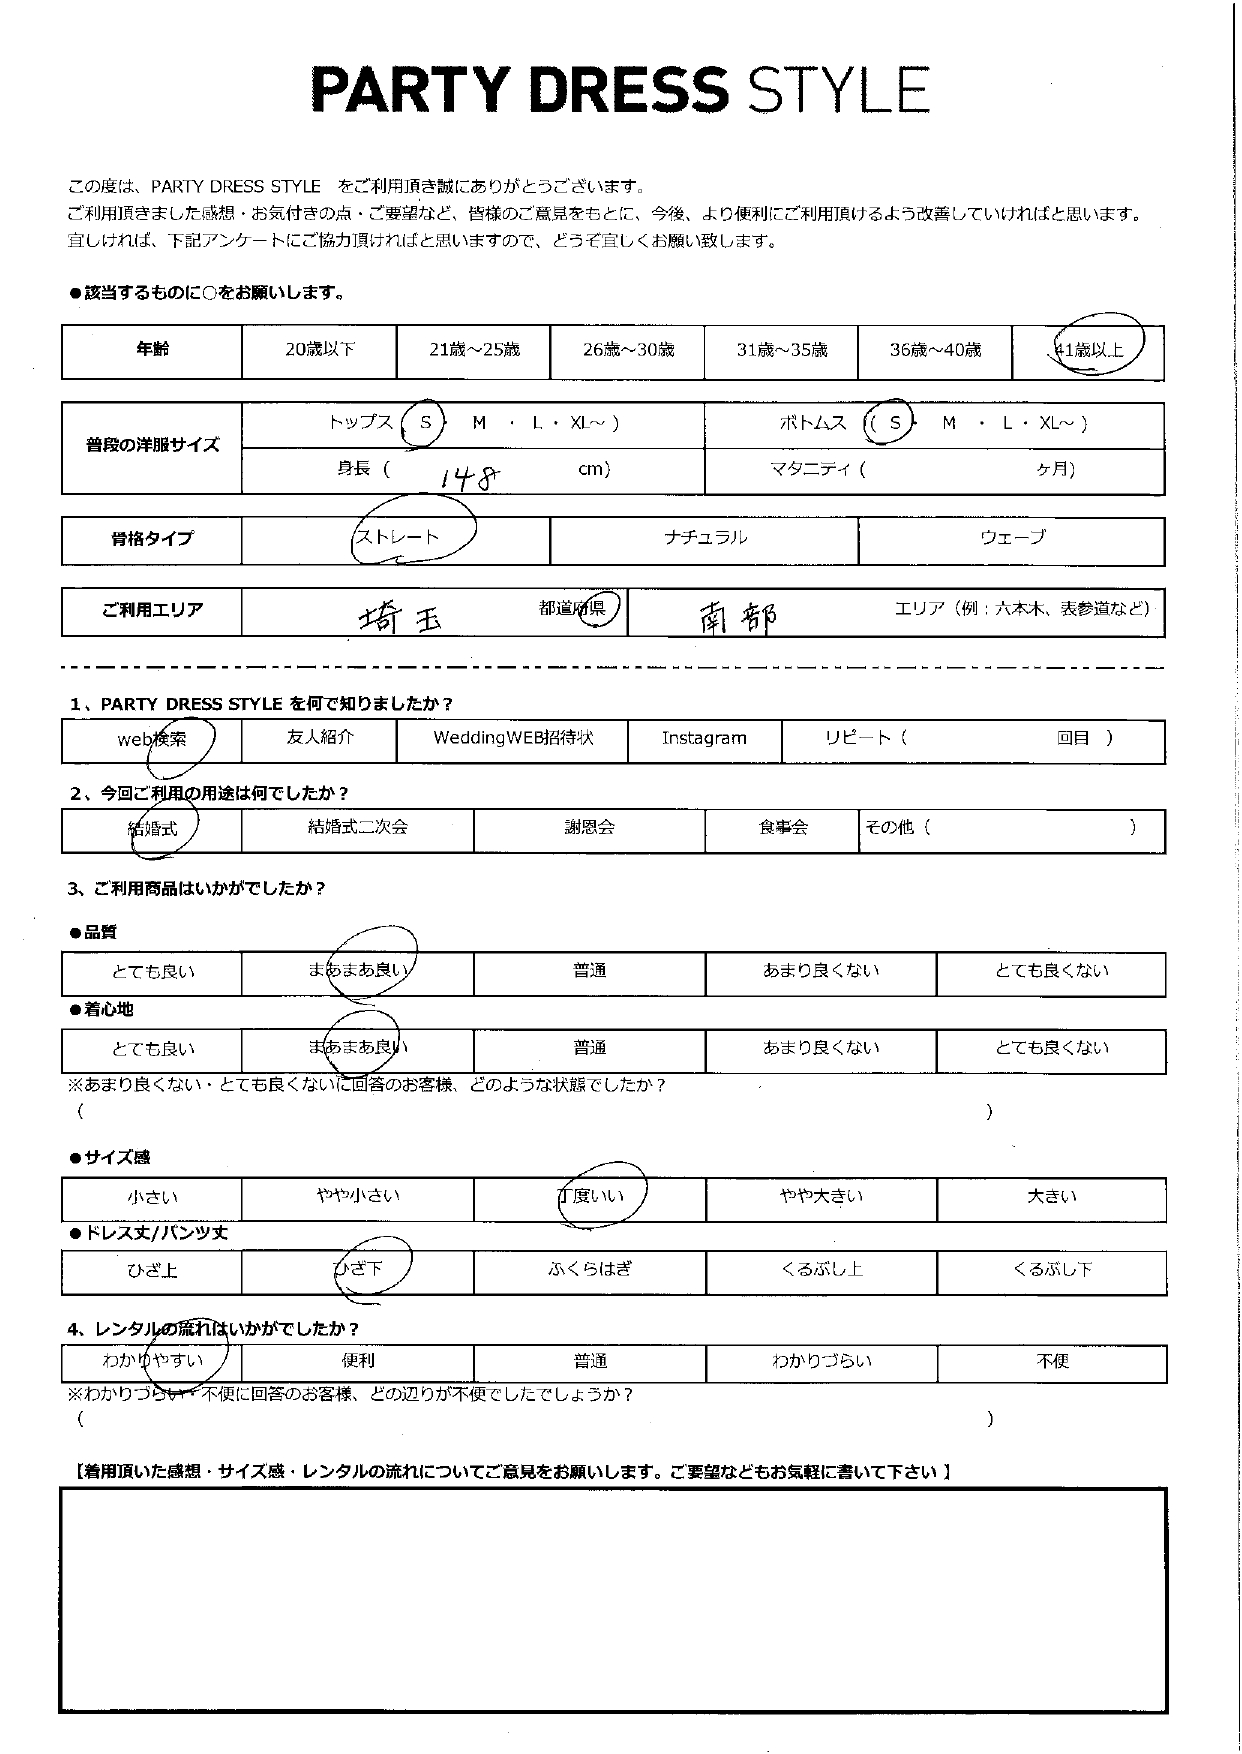 PARTY DRESS STYLE
この度は、PARTY DRESS STYLE　をご利用頂き誠にありがとうございます。
ご利用頂きました感想・お気付きの点・ご要望など、皆様のご意見をもとに、今後、より便利にご利用頂けるよう改善していければと思います。
宜しければ、下記アンケートにご協力頂ければと思いますので、どうぞ宜しくお願い致します。
●該当するものに○をお願いします。
年齢 20歳以下 21歳～25歳 26歳～30歳 31歳～35歳 36歳～40歳 41歳以上
普段の洋服サイズ トップス ( S ・ M ・ L ・ XL～ ) ボトムス ( S ・ M ・ L ・ XL～ )
身長 ( 148 cm) マタニティ ( ヶ月)
骨格タイプ ストレート ナチュラル ウェーブ
ご利用エリア 埼玉 都道府県 南部 エリア（例：六本木、表参道など）
1、PARTY DRESS STYLE を何で知りましたか？
web検索 友人紹介 WeddingWEB招待状 Instagram リピート（ 回目 ）
2、今回ご利用の用途は何でしたか？
結婚式 結婚式二次会 謝恩会 食事会 その他（ ）
3、ご利用商品はいかがでしたか？
●品質
とても良い まあまあ良い 普通 あまり良くない とても良くない
●着心地
とても良い まあまあ良い 普通 あまり良くない とても良くない
※あまり良くない・とても良くないに回答のお客様、どのような状態でしたか？
（ ）
●サイズ感
小さい やや小さい 丁度いい やや大きい 大きい
●ドレス丈/パンツ丈
ひざ上 ひざ下 ふくらはぎ くるぶし上 くるぶし下
4、レンタルの流れはいかがでしたか？
わかりやすい 便利 普通 わかりづらい 不便
※わかりづらい・不便に回答のお客様、どの辺りが不便でしたでしょうか？
（ ）
【着用頂いた感想・サイズ感・レンタルの流れについてご意見をお願いします。ご要望などもお気軽に書いて下さい 】